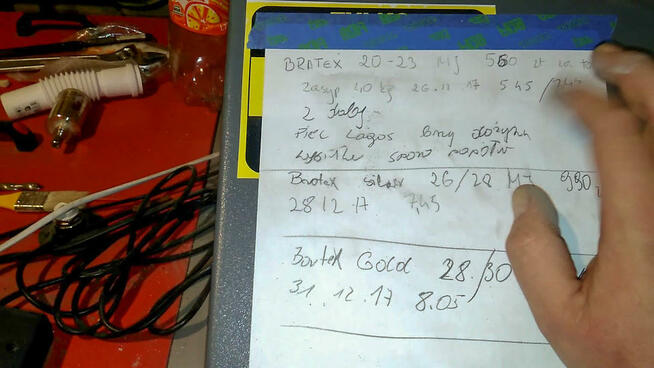 BRATEX 20-23 MJ 550 zł za to
Zasyp 40 kg 26.11.17 5.45/
2 doby -
Piec Lagos
sporo popiołu
Bratex silver 26/28 MJ 990
28 12 17 7,45
Bartex Gold 28/30
31.12.17 8.05